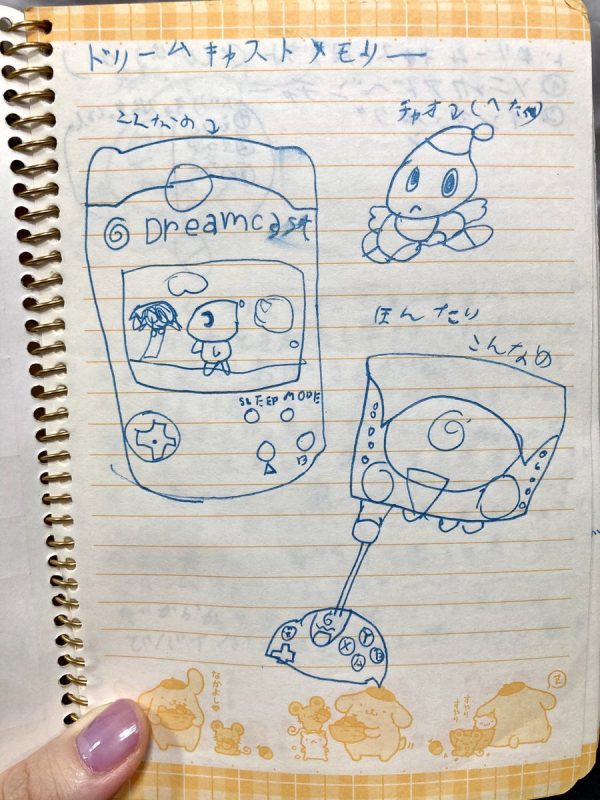 ドリームキャストメモリー
こんなの↓
チャオ↓
Dreamcast
ほんたい
こんなの
SLEEP MODE
A B
Y
X B
A
なかよし♡